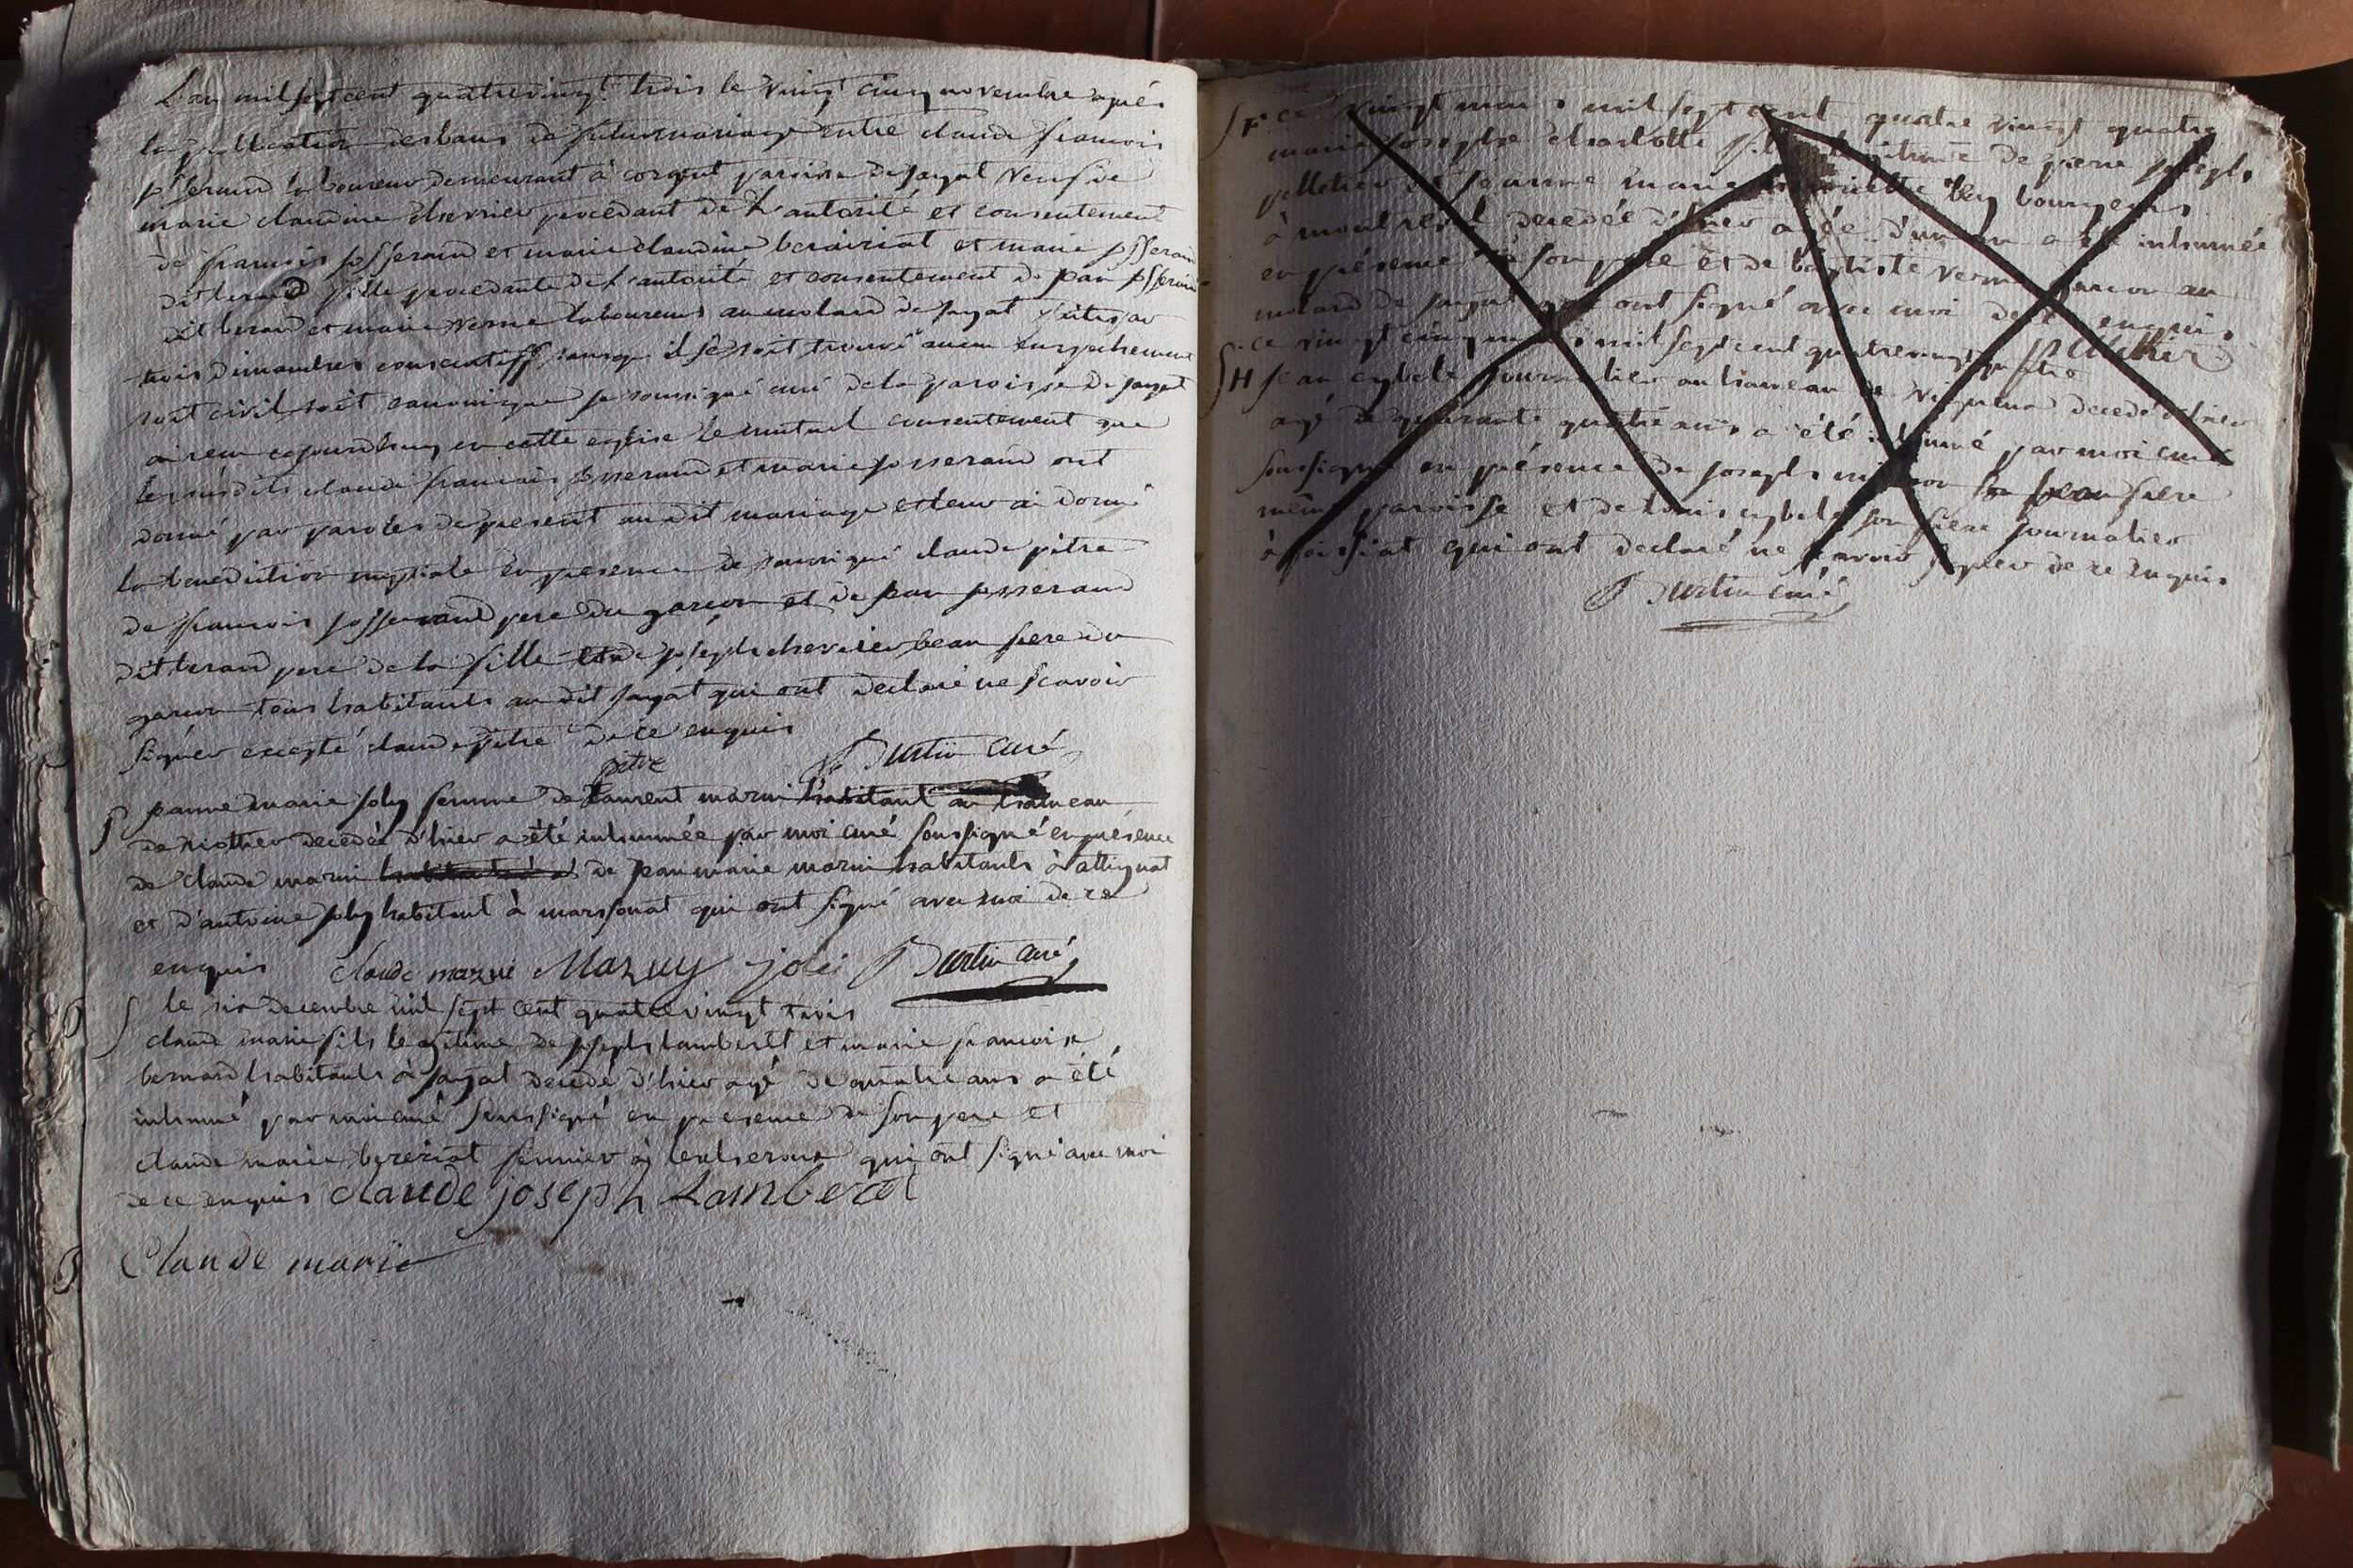 L'an mil sept cent quatrevingt trois le vingt cinq novembre après
la publication des bans de futur mariage entre claude francois
josserand laboureur demeurant à corgent paroisse de jayat veuf de
marie claudine chevrier procedant de l'autorité et consentement
de francois josserand et marie claudine berairiat et marie josserand
dit berand fille procedante de l'autorité et consentement de jean josserand
dit berand et marie verne laboureurs au molard de jayat faites par
trois dimanches consecutifs sans qu'il se soit trouvé aucun empechement
soit civil soit canonique je soussigné curé de la paroisse de jayat
ai recu cejourdhuy en cette eglise le mutuel consentement que
les susdits claude francois josserand et marie josserand ont
donné par paroles de present au dit mariage et leur ai donné
la benediction nuptiale en presence de soussigné claude pitre
de francois josserand pere du garcon et de jean josserand
dit berand pere de la fille et de joseph chevrier beau frere du
garcon tous habitants au dit jayat qui ont declaré ne scavoir
signer excepté claude pitre de ce enquis
pitre Burtin curé
jeanne marie joly femme de laurent marui habitant au hameau
de decedée d'hier a été inhumée par moi curé soussigné en présence
de claude marui de jean marie marui habitants à attignat
et d'antoine joly habitant à marsonat qui ont signé avec moi de ce
enquis claude mazui Mazuy joli Burtin curé
le six decembre mil sept cent quatrevingt trois
claude marie fils legitime de joseph lamberet et marie francoise
bernard habitants à jayat decedé d'hier agé de quatre ans a été
inhumé par moi curé soussigné en presence de son pere et
claude marie bereziat fermier à qui ont signé avec moi
de ce enquis claude joseph Lamberet
Claude marie
F ce vingt mars mil sept cent quatre vingt quatre
marie josephe charlotte fille legitime de pierre joseph
pelletier et jeanne marie bourgeois
à montrevel decedée d'hier agée d'un an a été inhumée
en présence de son pere et de baptiste verne garcon au
molard de jayat qui ont signé avec moi de ce enquis
ce vingt cinq mars mil sept cent quatrevingt quatre pelletier
H jean cybele journalier au hameau de decedé d'hier
agé de quarante quatre ans a été inhumé par moi curé
soussigné en présence de joseph son beau frere
même paroisse et de louis cybele son frere journalier
à foissiat qui ont declaré ne scavoir signer de ce enquis
Burtin curé